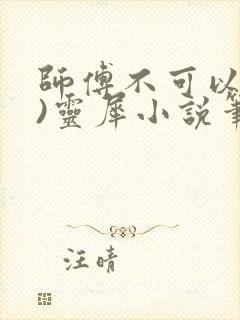 師傅不可以
)靈犀小說筆
汪晴